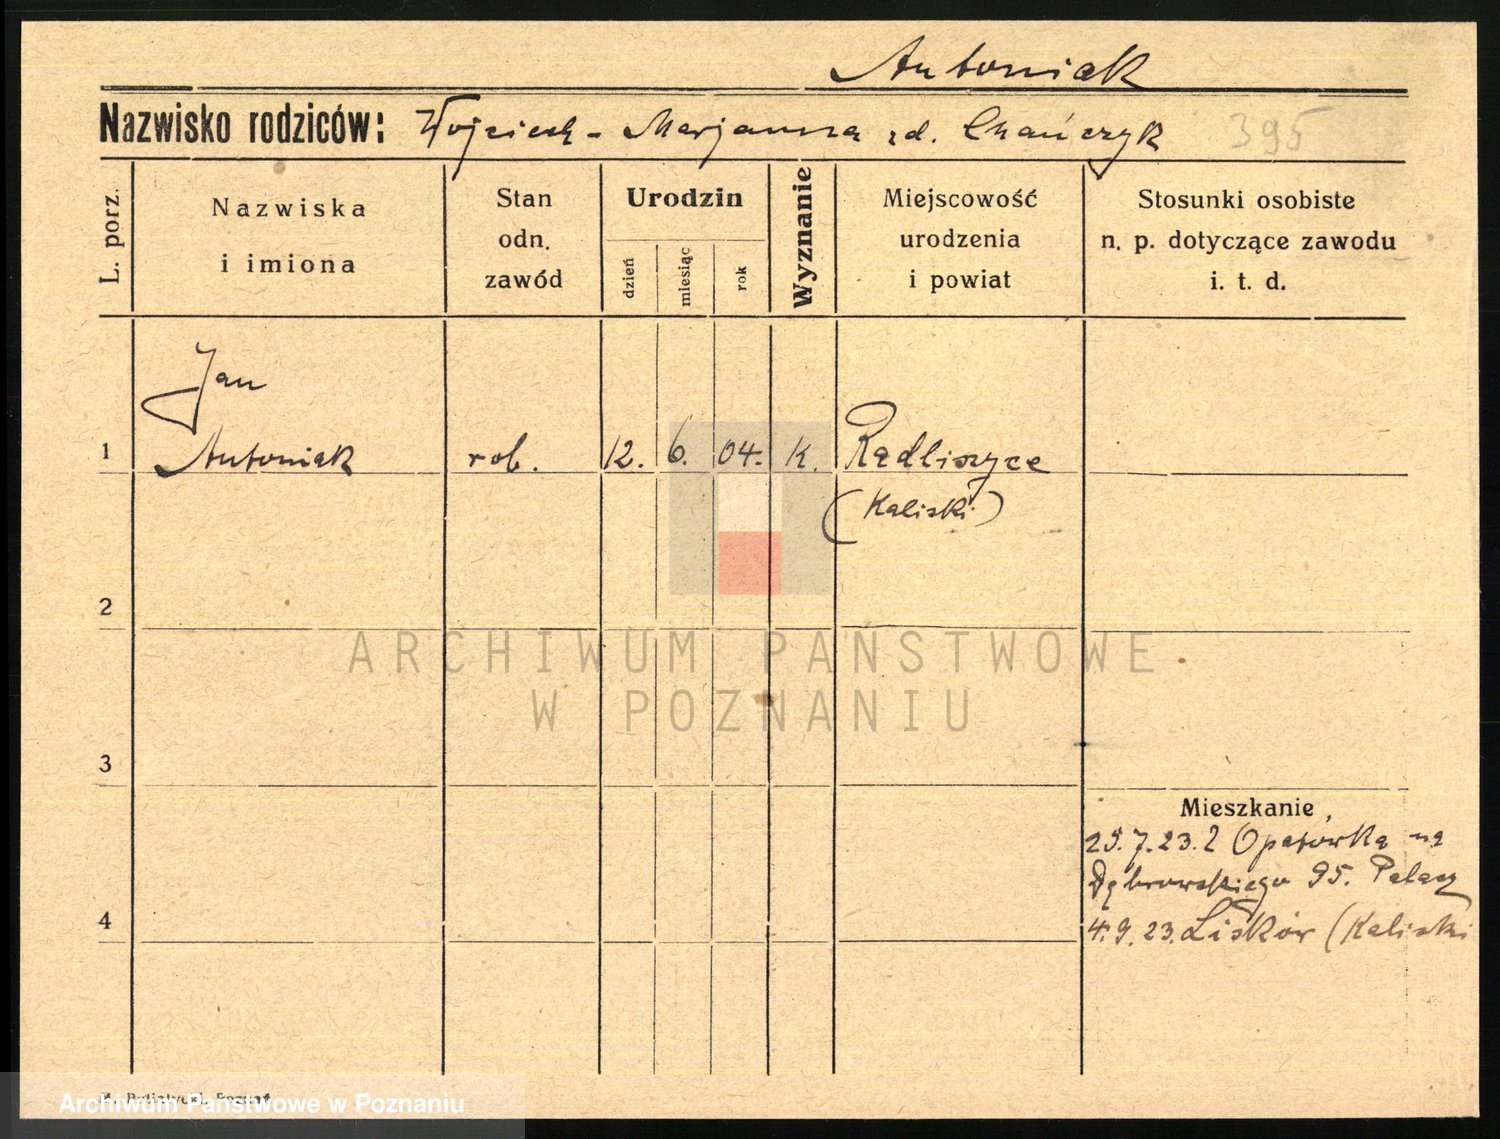 Antoniak
Nazwisko rodziców: Wojciech - Marjanna zd. Chańczyk 395
L. porz.
Nazwiska
i imiona
Stan
odn.
zawód
Urodzin
dzień
miesiąc
rok
Wyznanie
Miejscowość
urodzenia
i powiat
Stosunki osobiste
n. p. dotyczące zawodu
i. t. d.
Jan
1 Antoniak rob. 12. 6. 04. K. Radliszyce
(Kaliski)
2
ARCHIWUM PAŃSTWOWE
W POZNANIU
3
Mieszkanie
25.7.23. z Opatówka na
Dąbrowskiego 95. Palacz
4
4.9.23. Lisków (Kaliski
Poznań
Archiwum Państwowe w Poznaniu